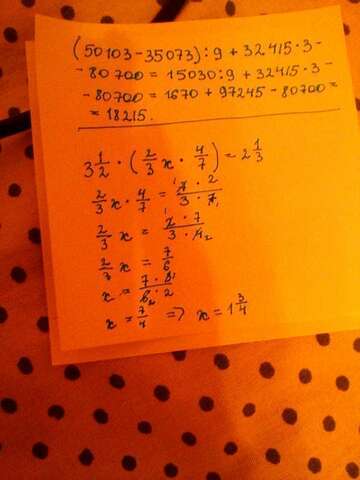 (50103-35073):9+32415·3-
-80700=15030:9+32415·3-
-80700=1670+97245-80700=
=18215.
3 1/2 · (2/3 x · 4/7) = 2 1/3
2/3 x · 4/7 = 7 · 2 / 3 · 7
2/3 x = 2 · 7 / 3 · 4 2
2/3 x = 7/6
x = 7 · 3 / 6 2 · 2
x = 7/4 => x = 1 3/4